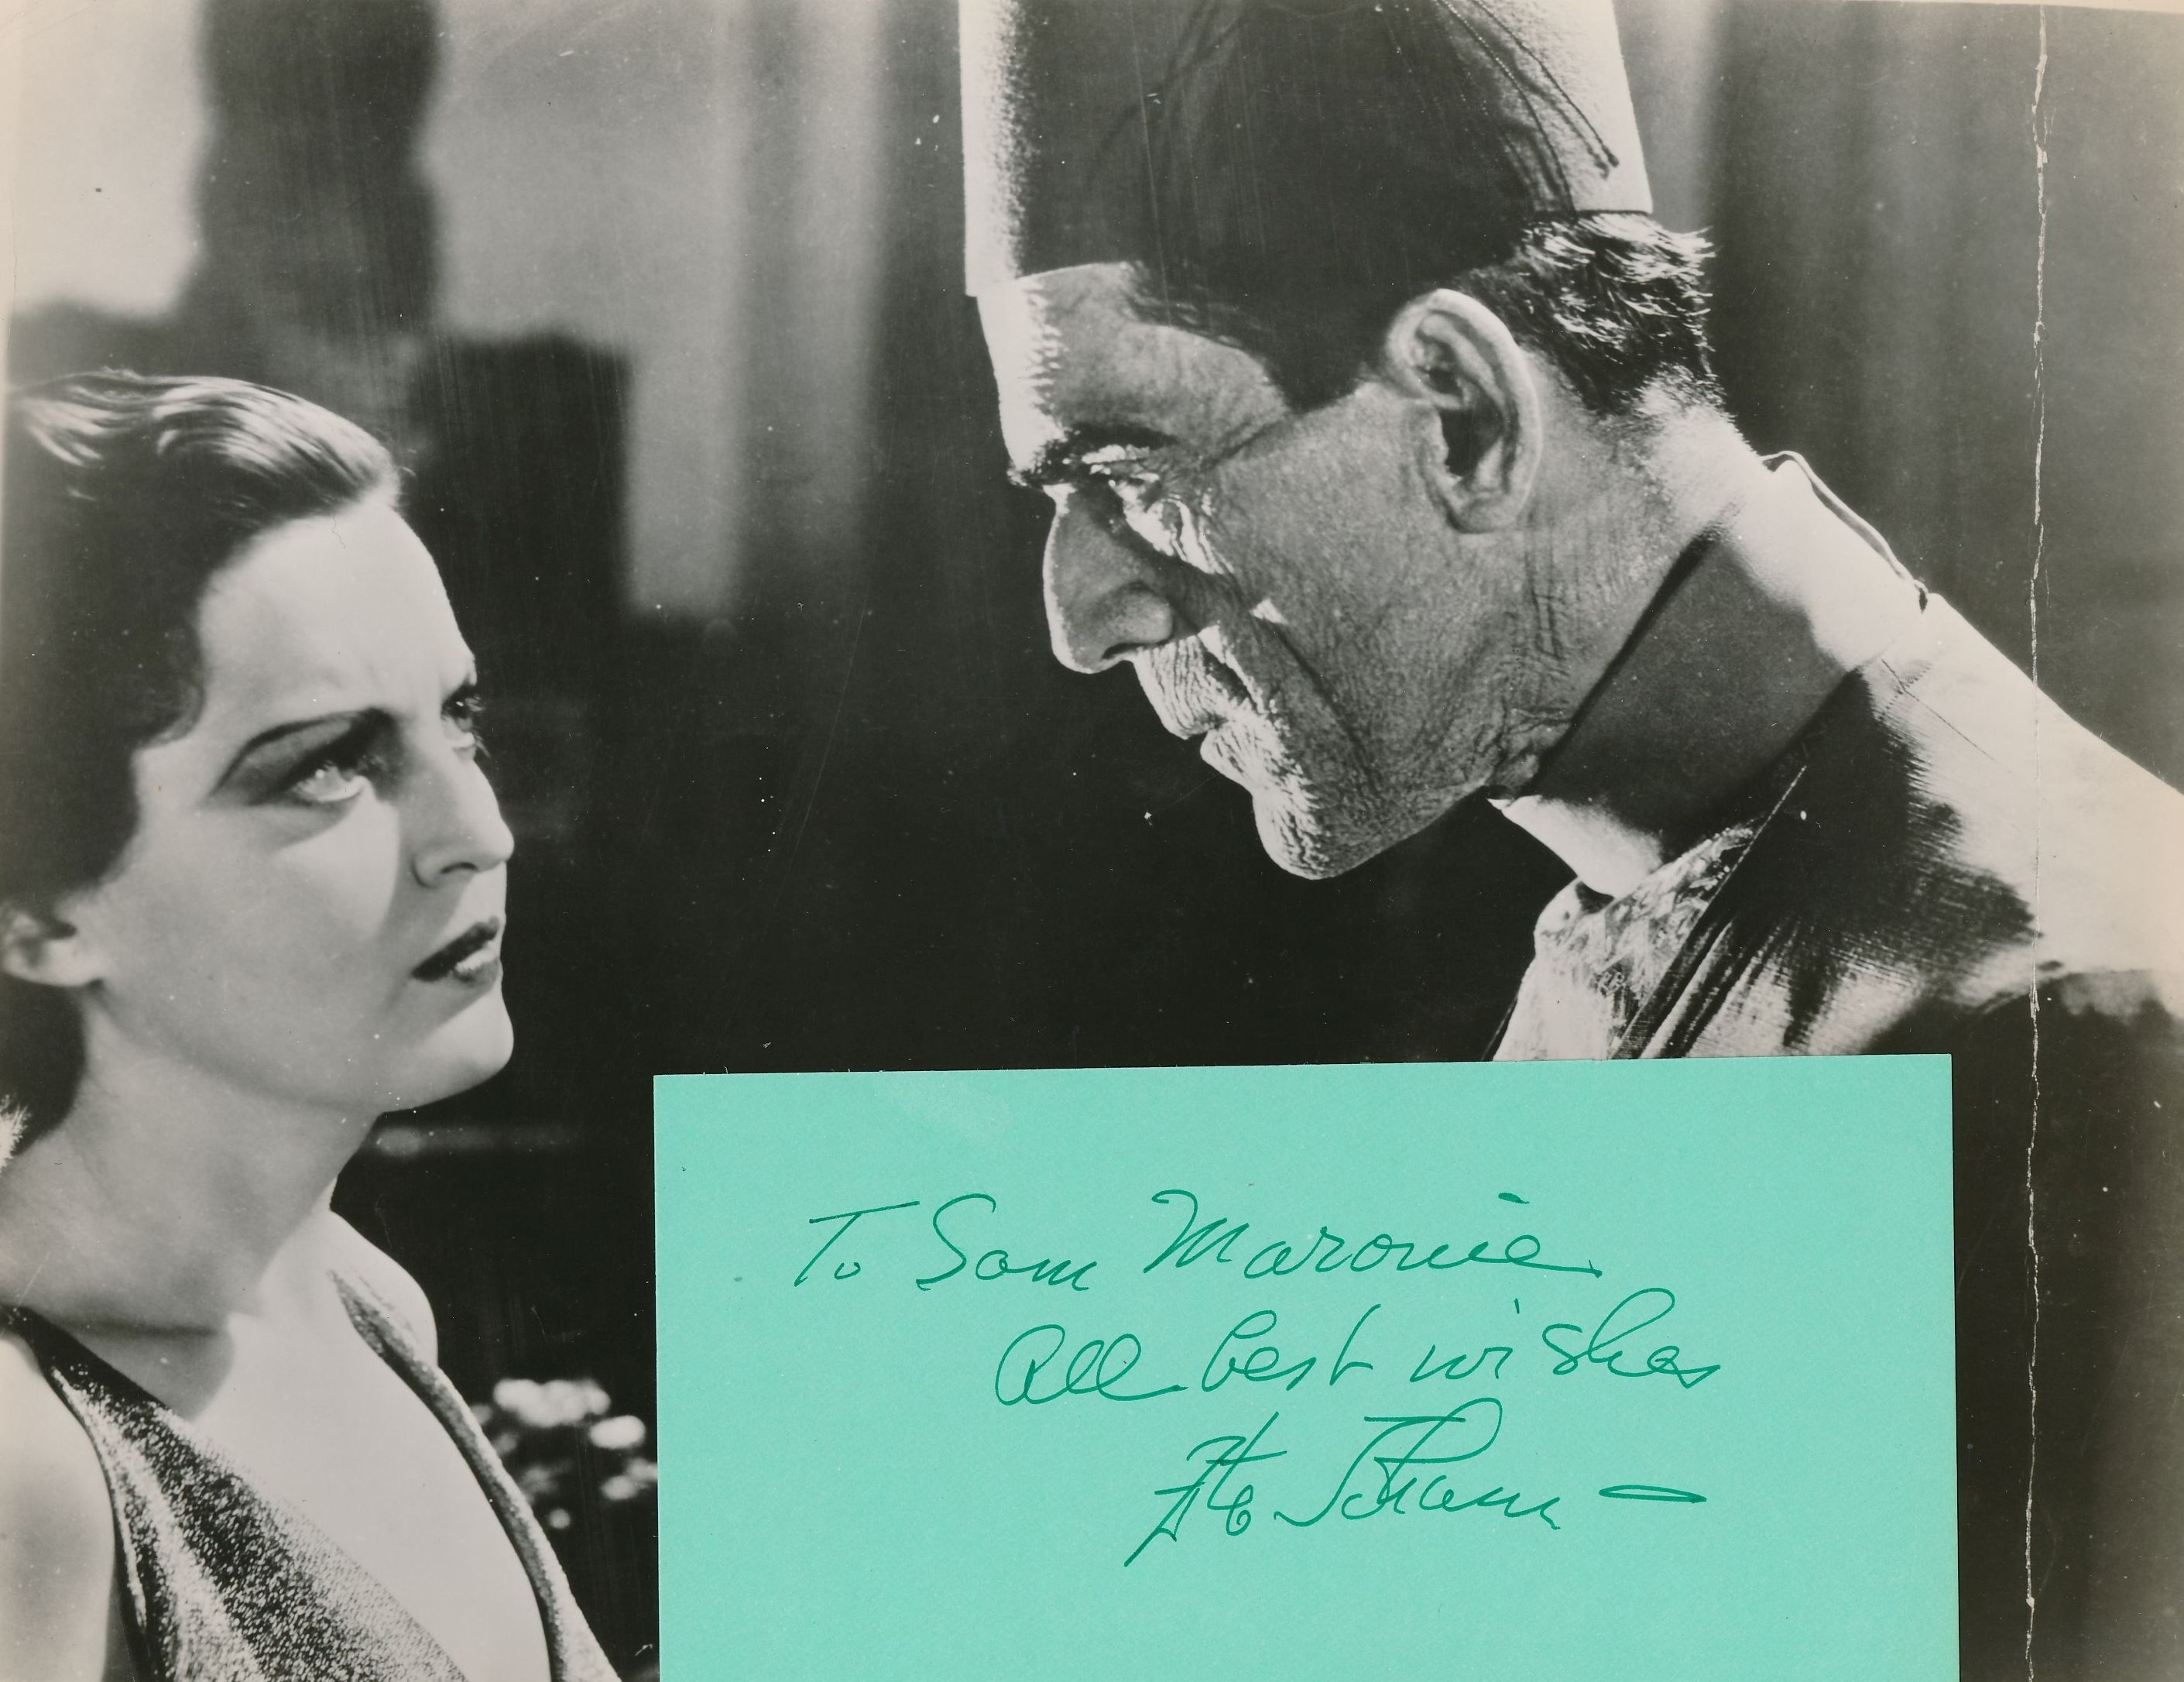 To Sam Maronie
All best wishes
Zita Johann